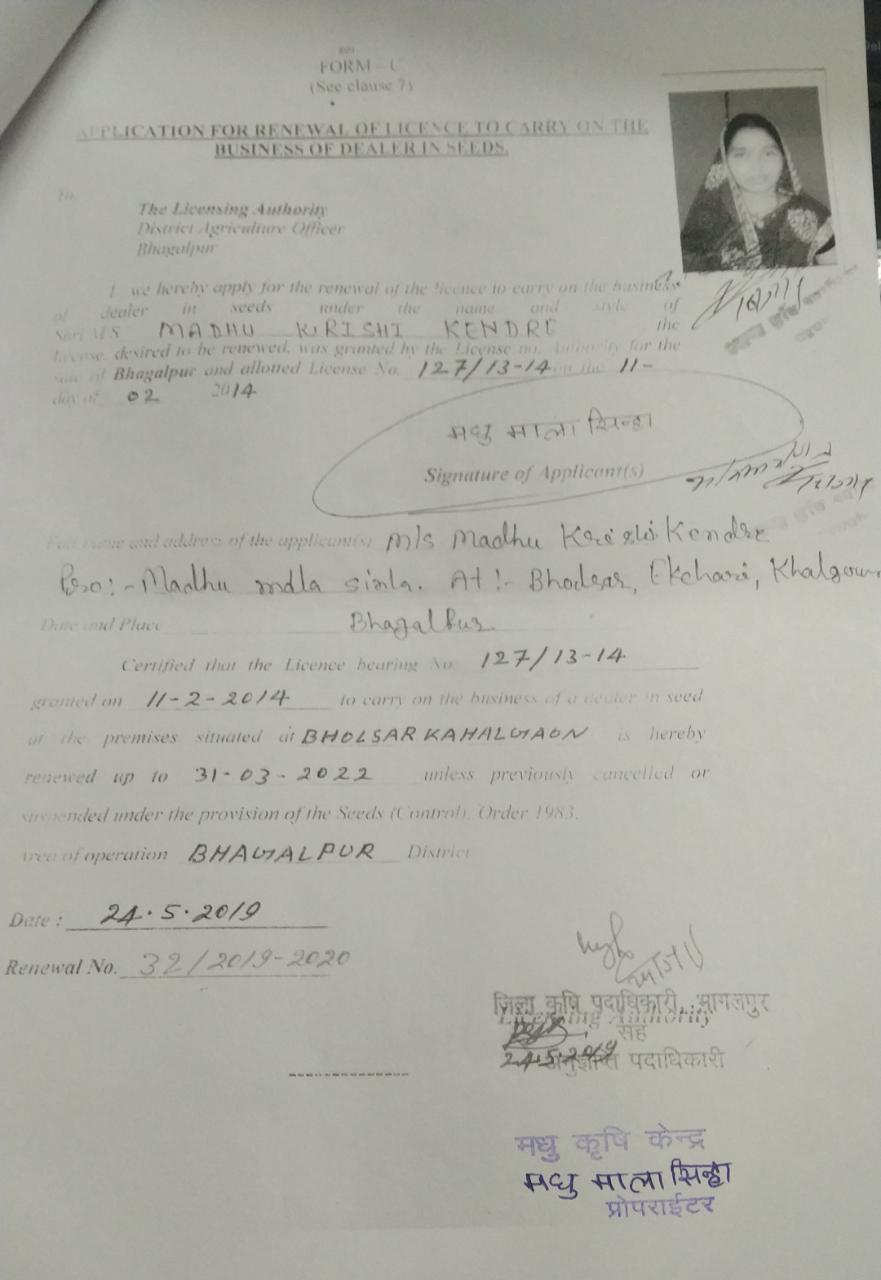 FORM - C
(See clause 7)
APPLICATION FOR RENEWAL OF LICENCE TO CARRY ON THE
BUSINESS OF DEALER IN SEEDS.
To,
The Licensing Authority
District Agriculture Officer
Bhagalpur
I we hereby apply for the renewal of the licence to carry on the business
of dealer in seeds under the name and style of
M/S MADHU KRISHI KENDRE the
license desired to be renewed, was granted by the License no. Authority for the
of Bhagalpur and allotted License No. 127/13-14 on the 11-
day of 02 2014
मधु माला सिन्हा
Signature of Applicant(s)
Full name and address of the applicant(s) M/s Madhu Krishi Kendre
Pro:- Madhu mala sinla. At :- Bholsar, Ekchari, Khalgoun
Date and Place Bhagalpur
Certified that the Licence bearing No. 127/13-14
granted on 11-2-2014 to carry on the business of a dealer in seed
at the premises situated at BHOLSAR KAHALGAON is hereby
renewed up to 31-03-2022 unless previously cancelled or
suspended under the provision of the Seeds (Control), Order 1983.
Area of operation BHAGALPUR District
Date : 24.5.2019
Renewal No. 32/2019-2020
जिला कृषि पदाधिकारी, भागलपुर
Licensing Authority
सह
24.5.2019
अनुज्ञप्ति पदाधिकारी
मधु कृषि केन्द्र
मधु माला सिन्हा
प्रोपराईटर